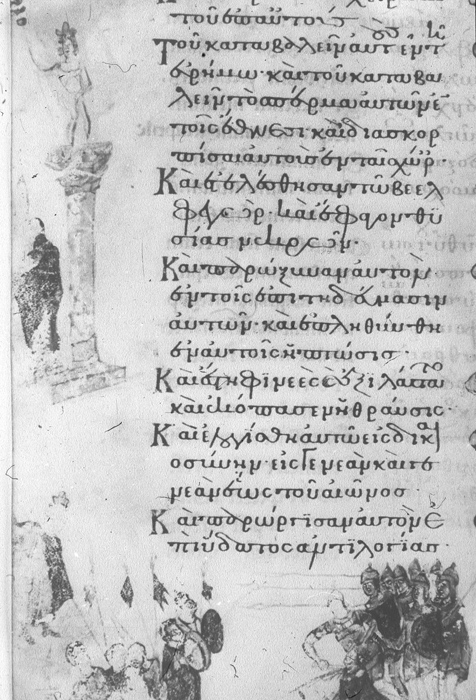 τοῦ ἐπ αὐτοὺς
Τοῦ καταβαλεῖν αὐτ ἐν τ
ἐρήμω· καὶ τοῦ καταβα
λεῖν τὸ σπέρμα αὐτῶν ἐν
τοῖς ἔθνεσι καὶ διασκορ
πίσαι αὐτοὺς ἐν ταῖς χώρ·
Καὶ ἐτελέσθησαν τῶ βεελ
φεγώρ· καὶ ἔφαγον θυ
σίας νεκρῶν·
Καὶ παρώξυναν αὐτὸν
ἐν τοῖς ἐπιτηδεύμασιν
αὐτῶν· καὶ ἐπληθύνθη
ἐν αὐτοῖς ἡ πτῶσις·
Καὶ ἔστη φινεὲς ἐξιλάτο
καὶ ἐκόπασεν ἡ θραῦσις
Καὶ ἐλογίσθη αὐτῶ εἰς δικαι
οσύνην· εἰς γενεὰν καὶ γε
νεὰν ἕως τοῦ αἰῶνος
Καὶ παρώργισαν αὐτὸν ἐ
πὶ ὕδατος ἀντιλογίας·